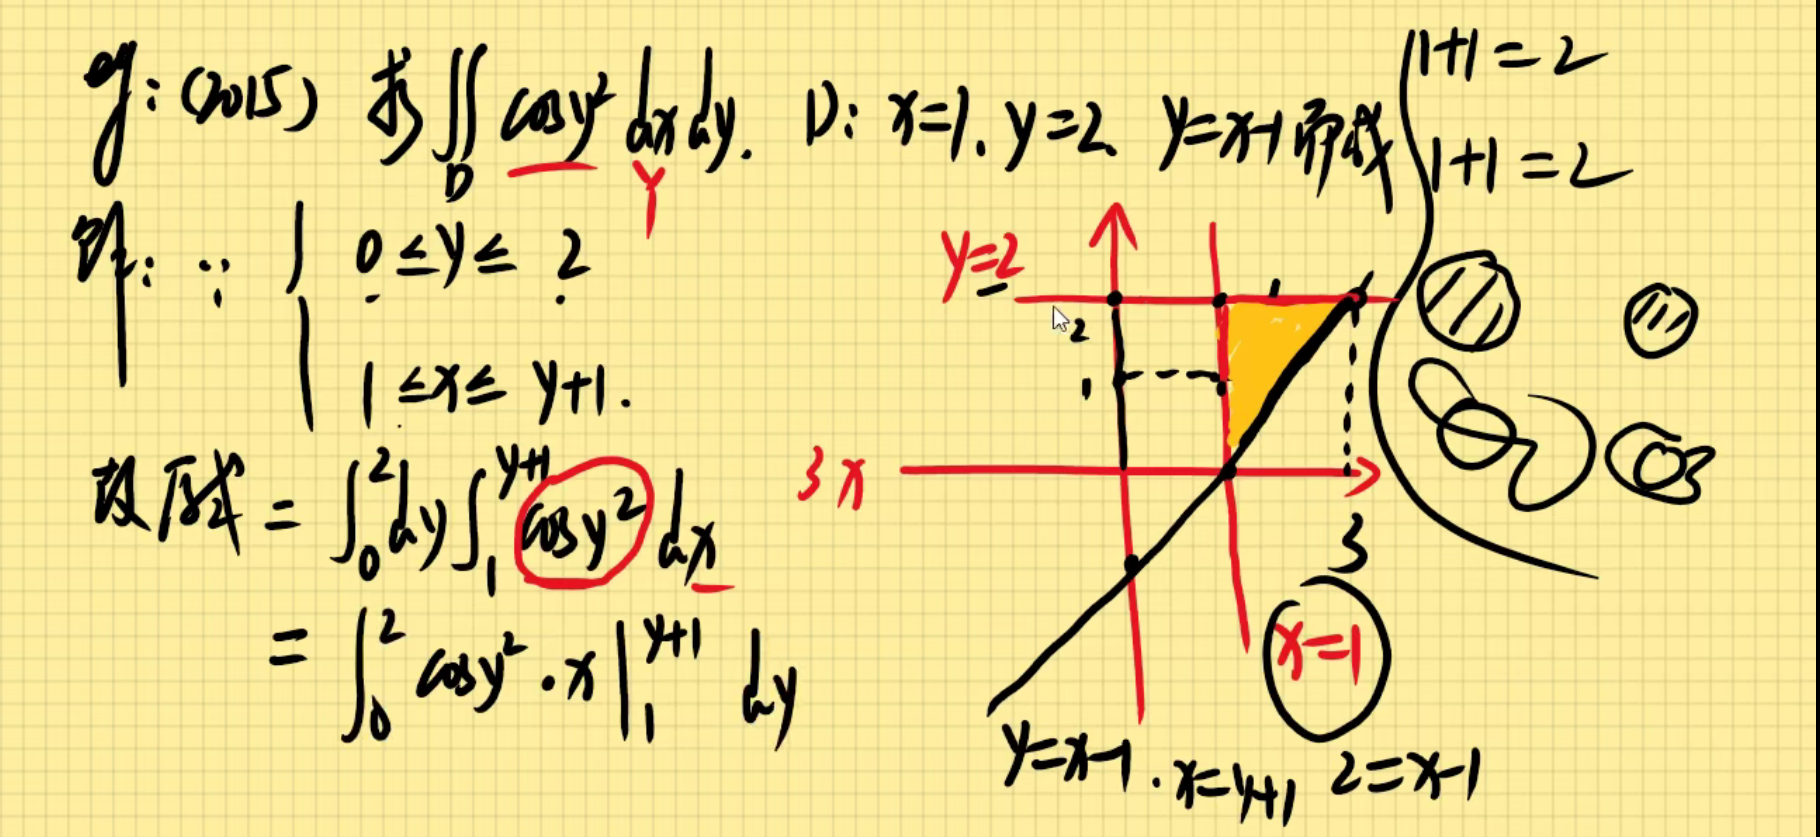 eg: (2015) 求∬_D cosy² dxdy. D: x=1. y=2 y=x-1 所成
Y
解: ∵ { 0 ≤ y ≤ 2
1 ≤ x ≤ y+1.
故原式 = ∫₀² dy ∫₁^(y+1) cosy² dx
= ∫₀² cosy² · x |₁^(y+1) dy
3 x
y=2
2
1
3
x=1
y=x-1 . x=y+1 2=x-1
1+1=2
1+1=2